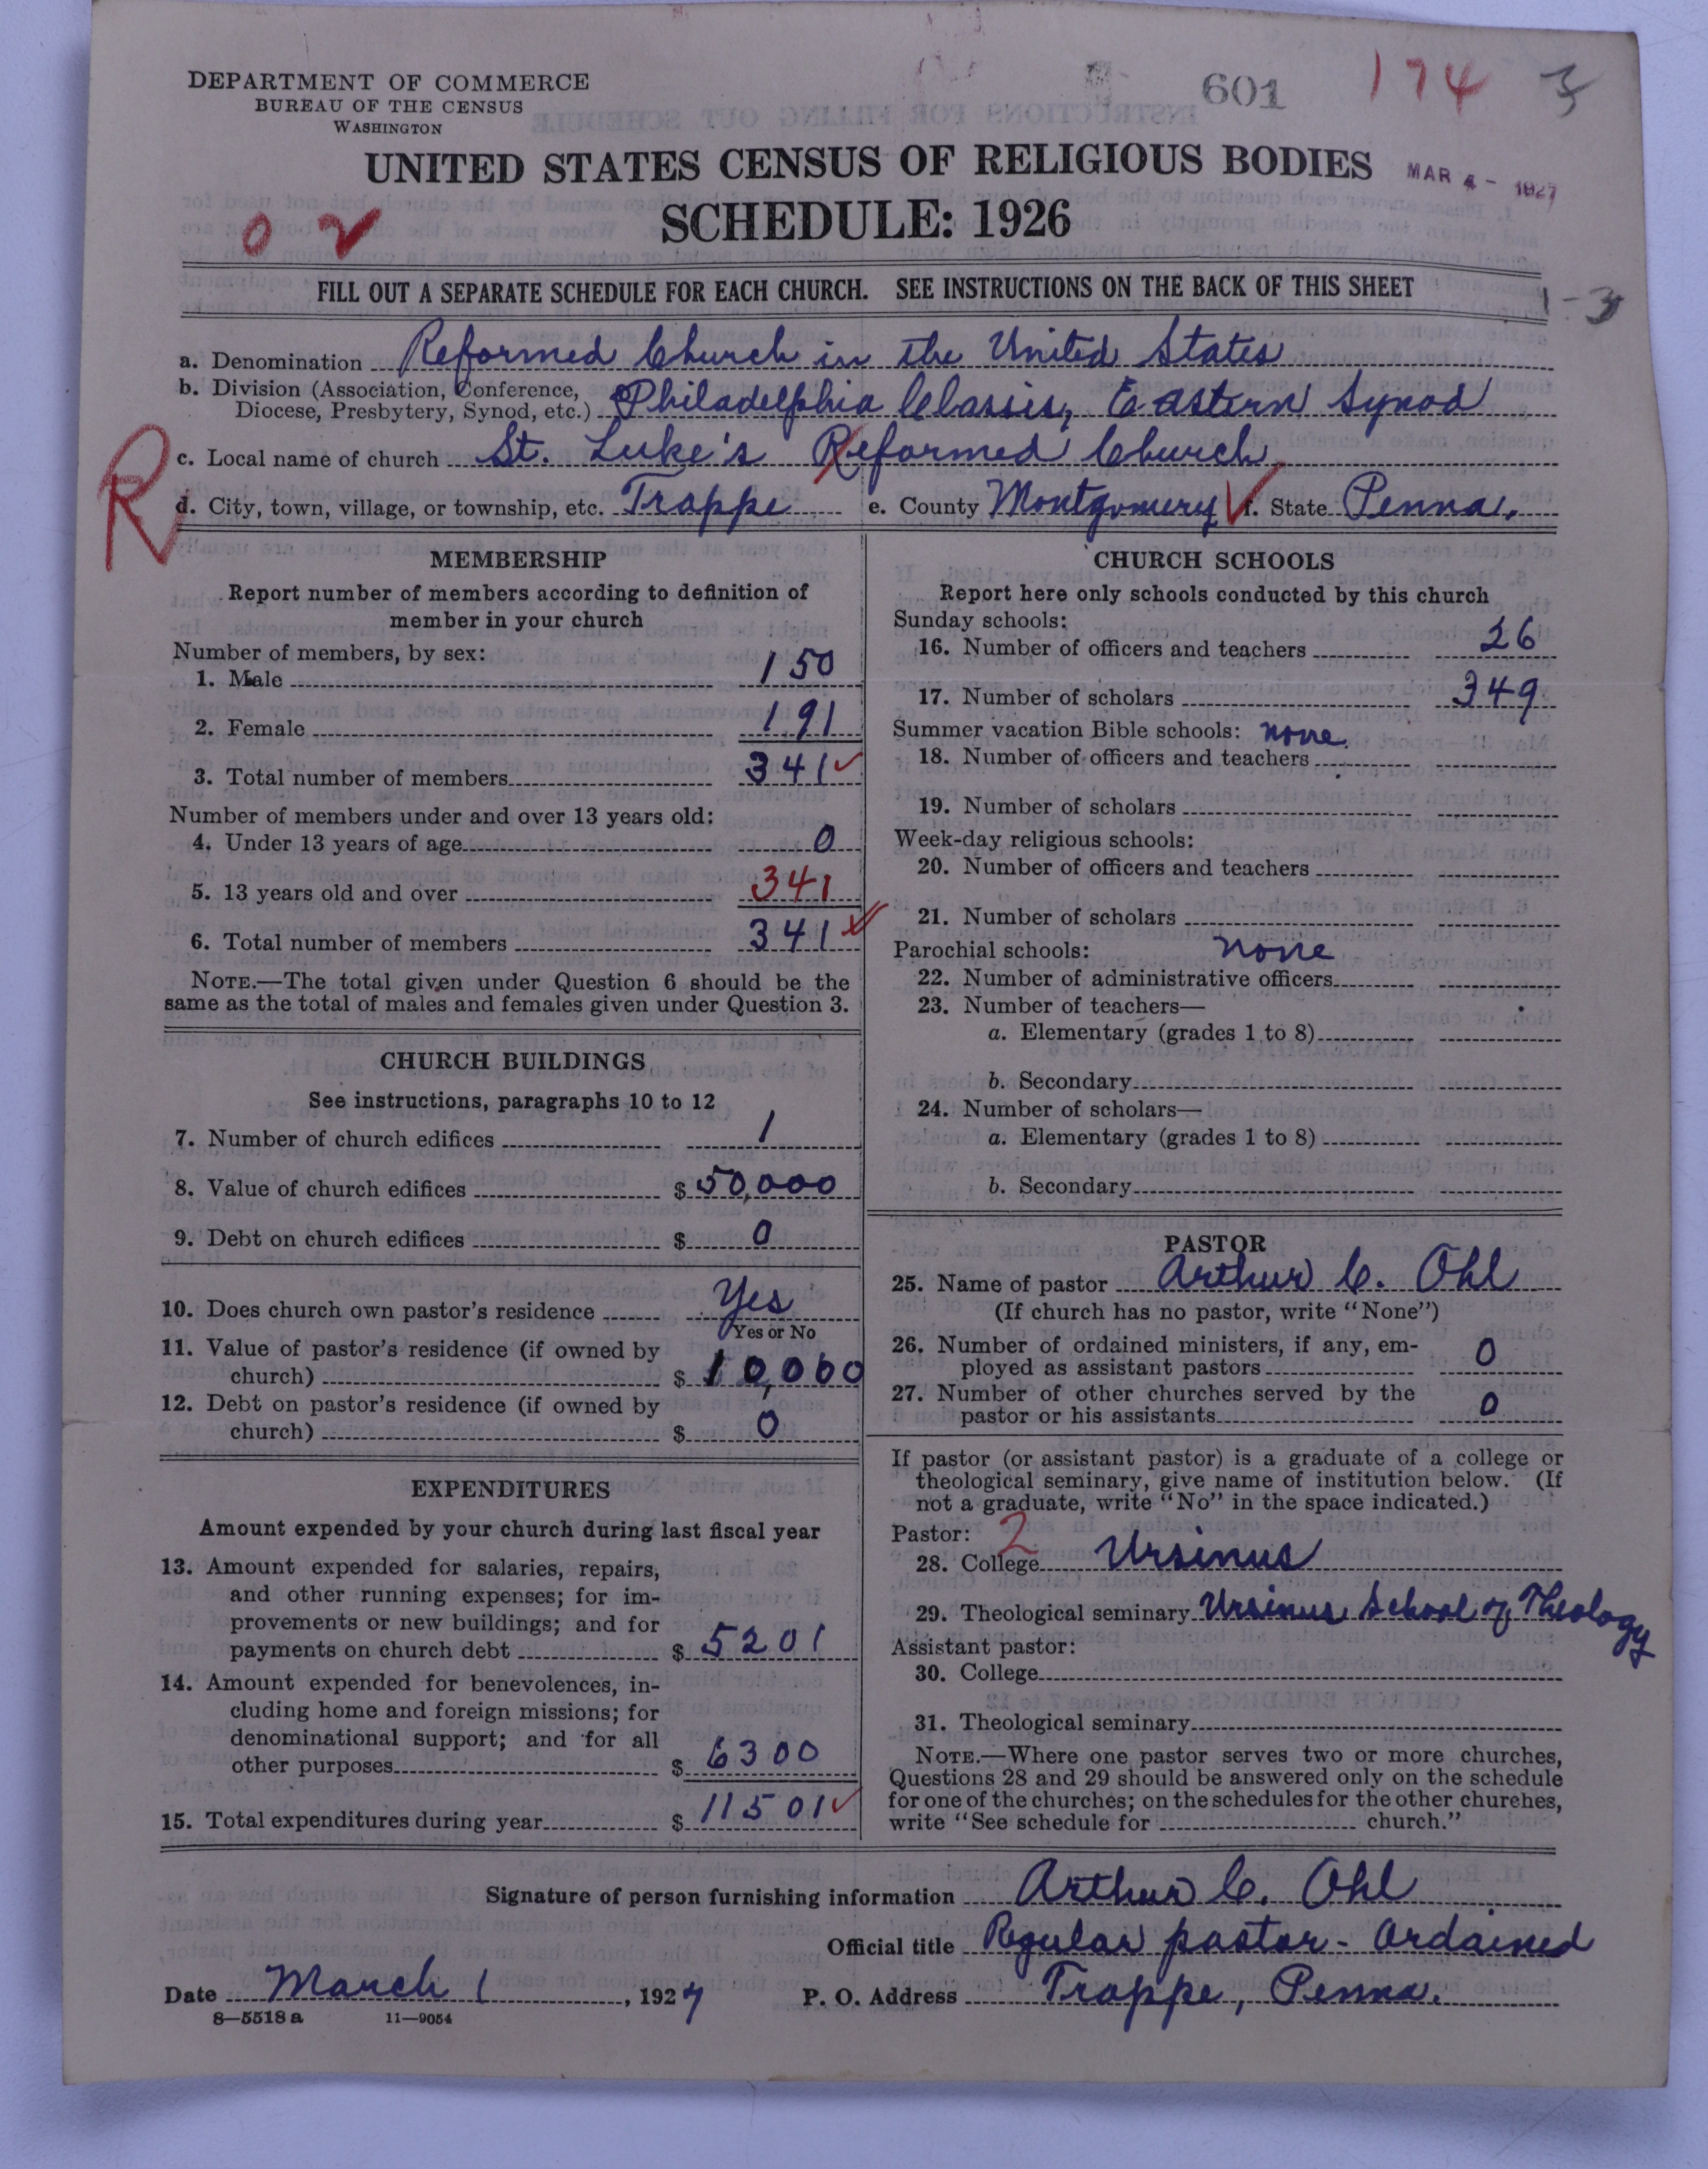 DEPARTMENT OF COMMERCE
BUREAU OF THE CENSUS
WASHINGTON
601 174 3
UNITED STATES CENSUS OF RELIGIOUS BODIES
MAR 4 - 1927
SCHEDULE: 1926
0 2
FILL OUT A SEPARATE SCHEDULE FOR EACH CHURCH. SEE INSTRUCTIONS ON THE BACK OF THIS SHEET
1-3
a. Denomination Reformed Church in the United States
b. Division (Association, Conference,
Diocese, Presbytery, Synod, etc.) Philadelphia Classis, Eastern Synod
c. Local name of church St. Luke's Reformed Church
R
d. City, town, village, or township, etc. Trappe e. County Montgomery f. State Penna.
MEMBERSHIP
Report number of members according to definition of
member in your church
Number of members, by sex:
1. Male 150
2. Female 191
3. Total number of members 341
Number of members under and over 13 years old:
4. Under 13 years of age 0
5. 13 years old and over 341
6. Total number of members 341
NOTE.—The total given under Question 6 should be the
same as the total of males and females given under Question 3.
CHURCH BUILDINGS
See instructions, paragraphs 10 to 12
7. Number of church edifices 1
8. Value of church edifices $ 50,000
9. Debt on church edifices $ 0
10. Does church own pastor's residence Yes
Yes or No
11. Value of pastor's residence (if owned by
church) $ 10,000
12. Debt on pastor's residence (if owned by
church) $ 0
EXPENDITURES
Amount expended by your church during last fiscal year
13. Amount expended for salaries, repairs,
and other running expenses; for im-
provements or new buildings; and for
payments on church debt $ 5201
14. Amount expended for benevolences, in-
cluding home and foreign missions; for
denominational support; and for all
other purposes $ 6300
15. Total expenditures during year $ 11501
CHURCH SCHOOLS
Report here only schools conducted by this church
Sunday schools:
16. Number of officers and teachers 26
17. Number of scholars 349
Summer vacation Bible schools: none
18. Number of officers and teachers
19. Number of scholars
Week-day religious schools:
20. Number of officers and teachers
21. Number of scholars
Parochial schools: none
22. Number of administrative officers
23. Number of teachers—
a. Elementary (grades 1 to 8)
b. Secondary
24. Number of scholars—
a. Elementary (grades 1 to 8)
b. Secondary
PASTOR
25. Name of pastor Arthur C. Ohl
(If church has no pastor, write "None")
26. Number of ordained ministers, if any, em-
ployed as assistant pastors 0
27. Number of other churches served by the
pastor or his assistants 0
If pastor (or assistant pastor) is a graduate of a college or
theological seminary, give name of institution below. (If
not a graduate, write "No" in the space indicated.)
Pastor: 2
28. College Ursinus
29. Theological seminary Ursinus School of Theology
Assistant pastor:
30. College
31. Theological seminary
NOTE.—Where one pastor serves two or more churches,
Questions 28 and 29 should be answered only on the schedule
for one of the churches; on the schedules for the other churches,
write "See schedule for church."
Signature of person furnishing information Arthur C. Ohl
Official title Regular pastor - Ordained
Date March 1, 1927 P. O. Address Trappe, Penna.
8—5518 a 11—9054